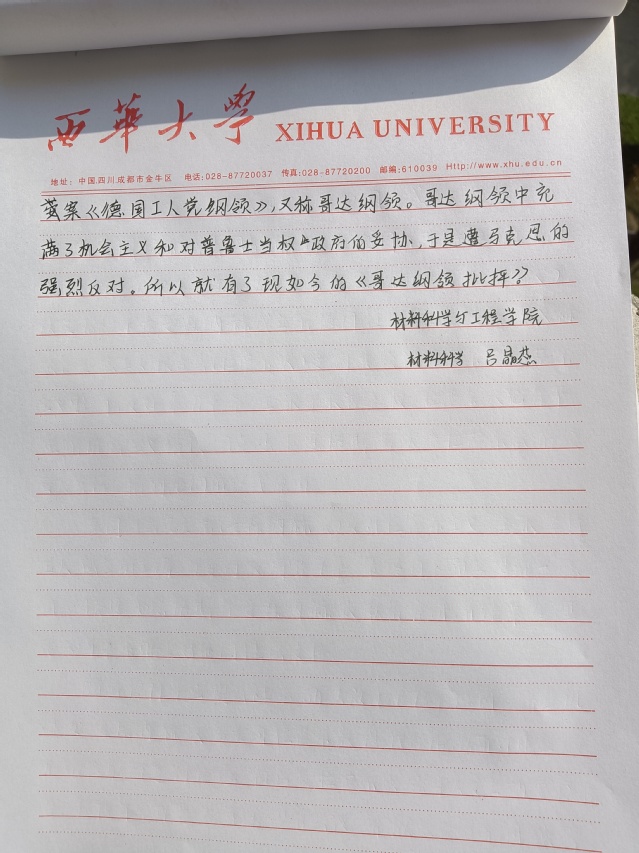 西華大學 XIHUA UNIVERSITY
地址：中国.四川.成都市金牛区 电话:028-87720037 传真:028-87720200 邮编:610039 Http://www.xhu.edu.cn
草案《德国工人党纲领》，又称哥达纲领。哥达纲领中充
满了机会主义和对普鲁士当权政府的妥协，于是遭马克思的
强烈反对。所以就有了现如今的《哥达纲领批评》
材料科学与工程学院
材料科学 吕晶